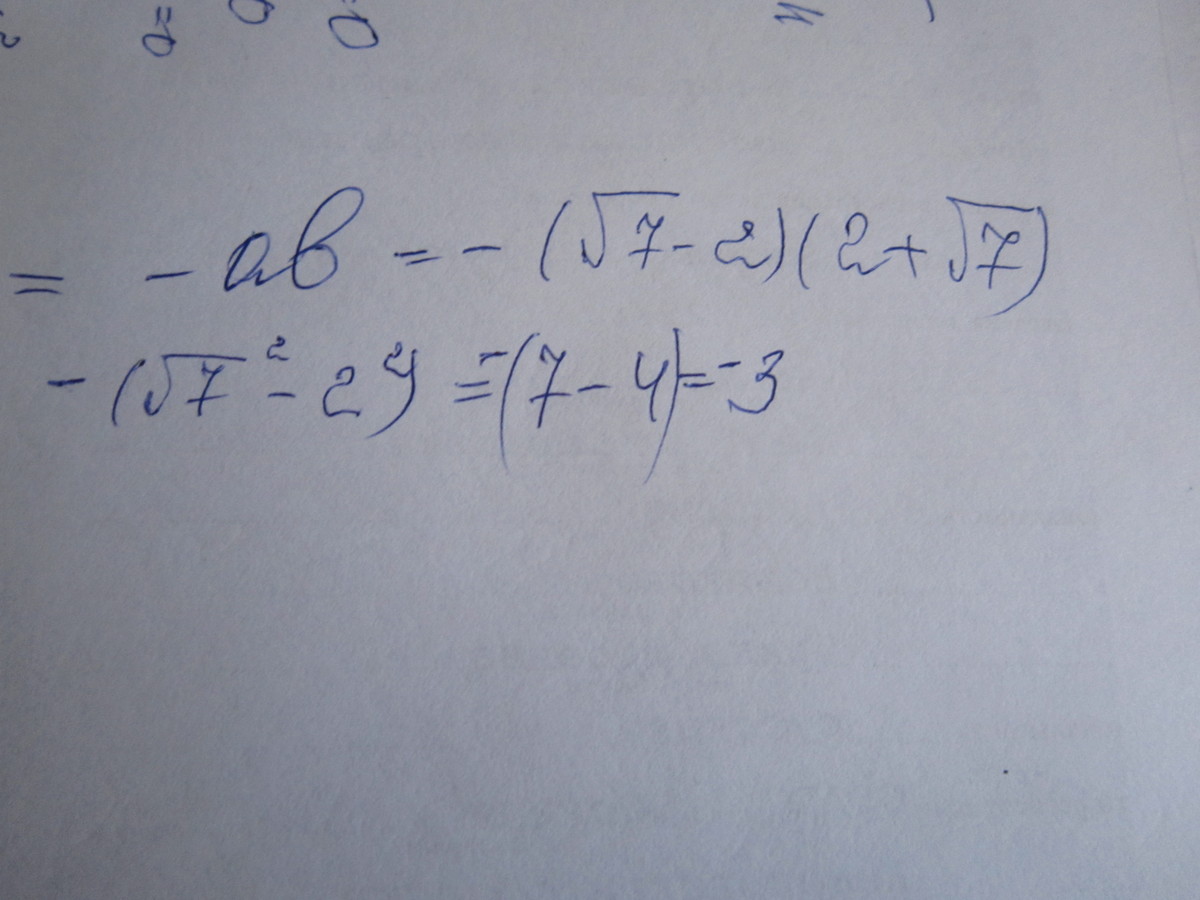 = - ab = - (√7 - 2)(2 + √7)
- (√7² - 2²) = -(7 - 4) = -3